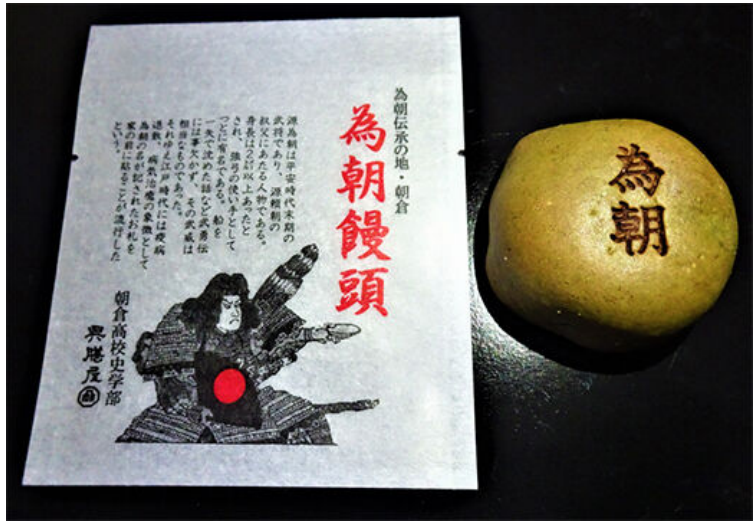 為朝伝承の地・朝倉
為朝饅頭
源為朝は平安時代末期の
武将であり、源頼朝の
叔父にあたる人物である。
身長は2ｍ以上あったと
され、強弓の使い手として
つとに有名である。船を
一矢で沈めた話など武勇伝
には事欠かず、その武威は
相当なものであった。
それゆえ江戸時代には疫病
退散、病気治癒の象徴として
為朝の名が記されたお札を
家の前に貼ることが流行した
という。
朝倉高校史学部
興膳屋
為朝